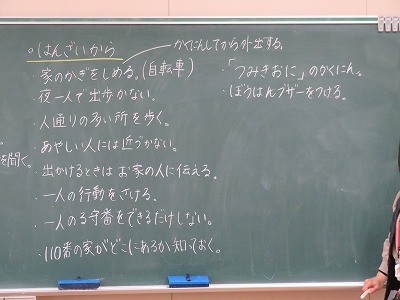 ○はんざいから
かくにんしてから外出する。
・家のかぎをしめる。(自転車)
・夜一人で出歩かない。
・人通りの多い所を歩く。
・あやしい人には近づかない。
・出かけるときはお家の人に伝える。
・一人の行動をさける。
・一人のる守番をできるだけしない。
・110番の家がどこにあるか知っておく。
・「つみきおに」のかくにん。
・ぼうはんブザーをつける。
を聞く。